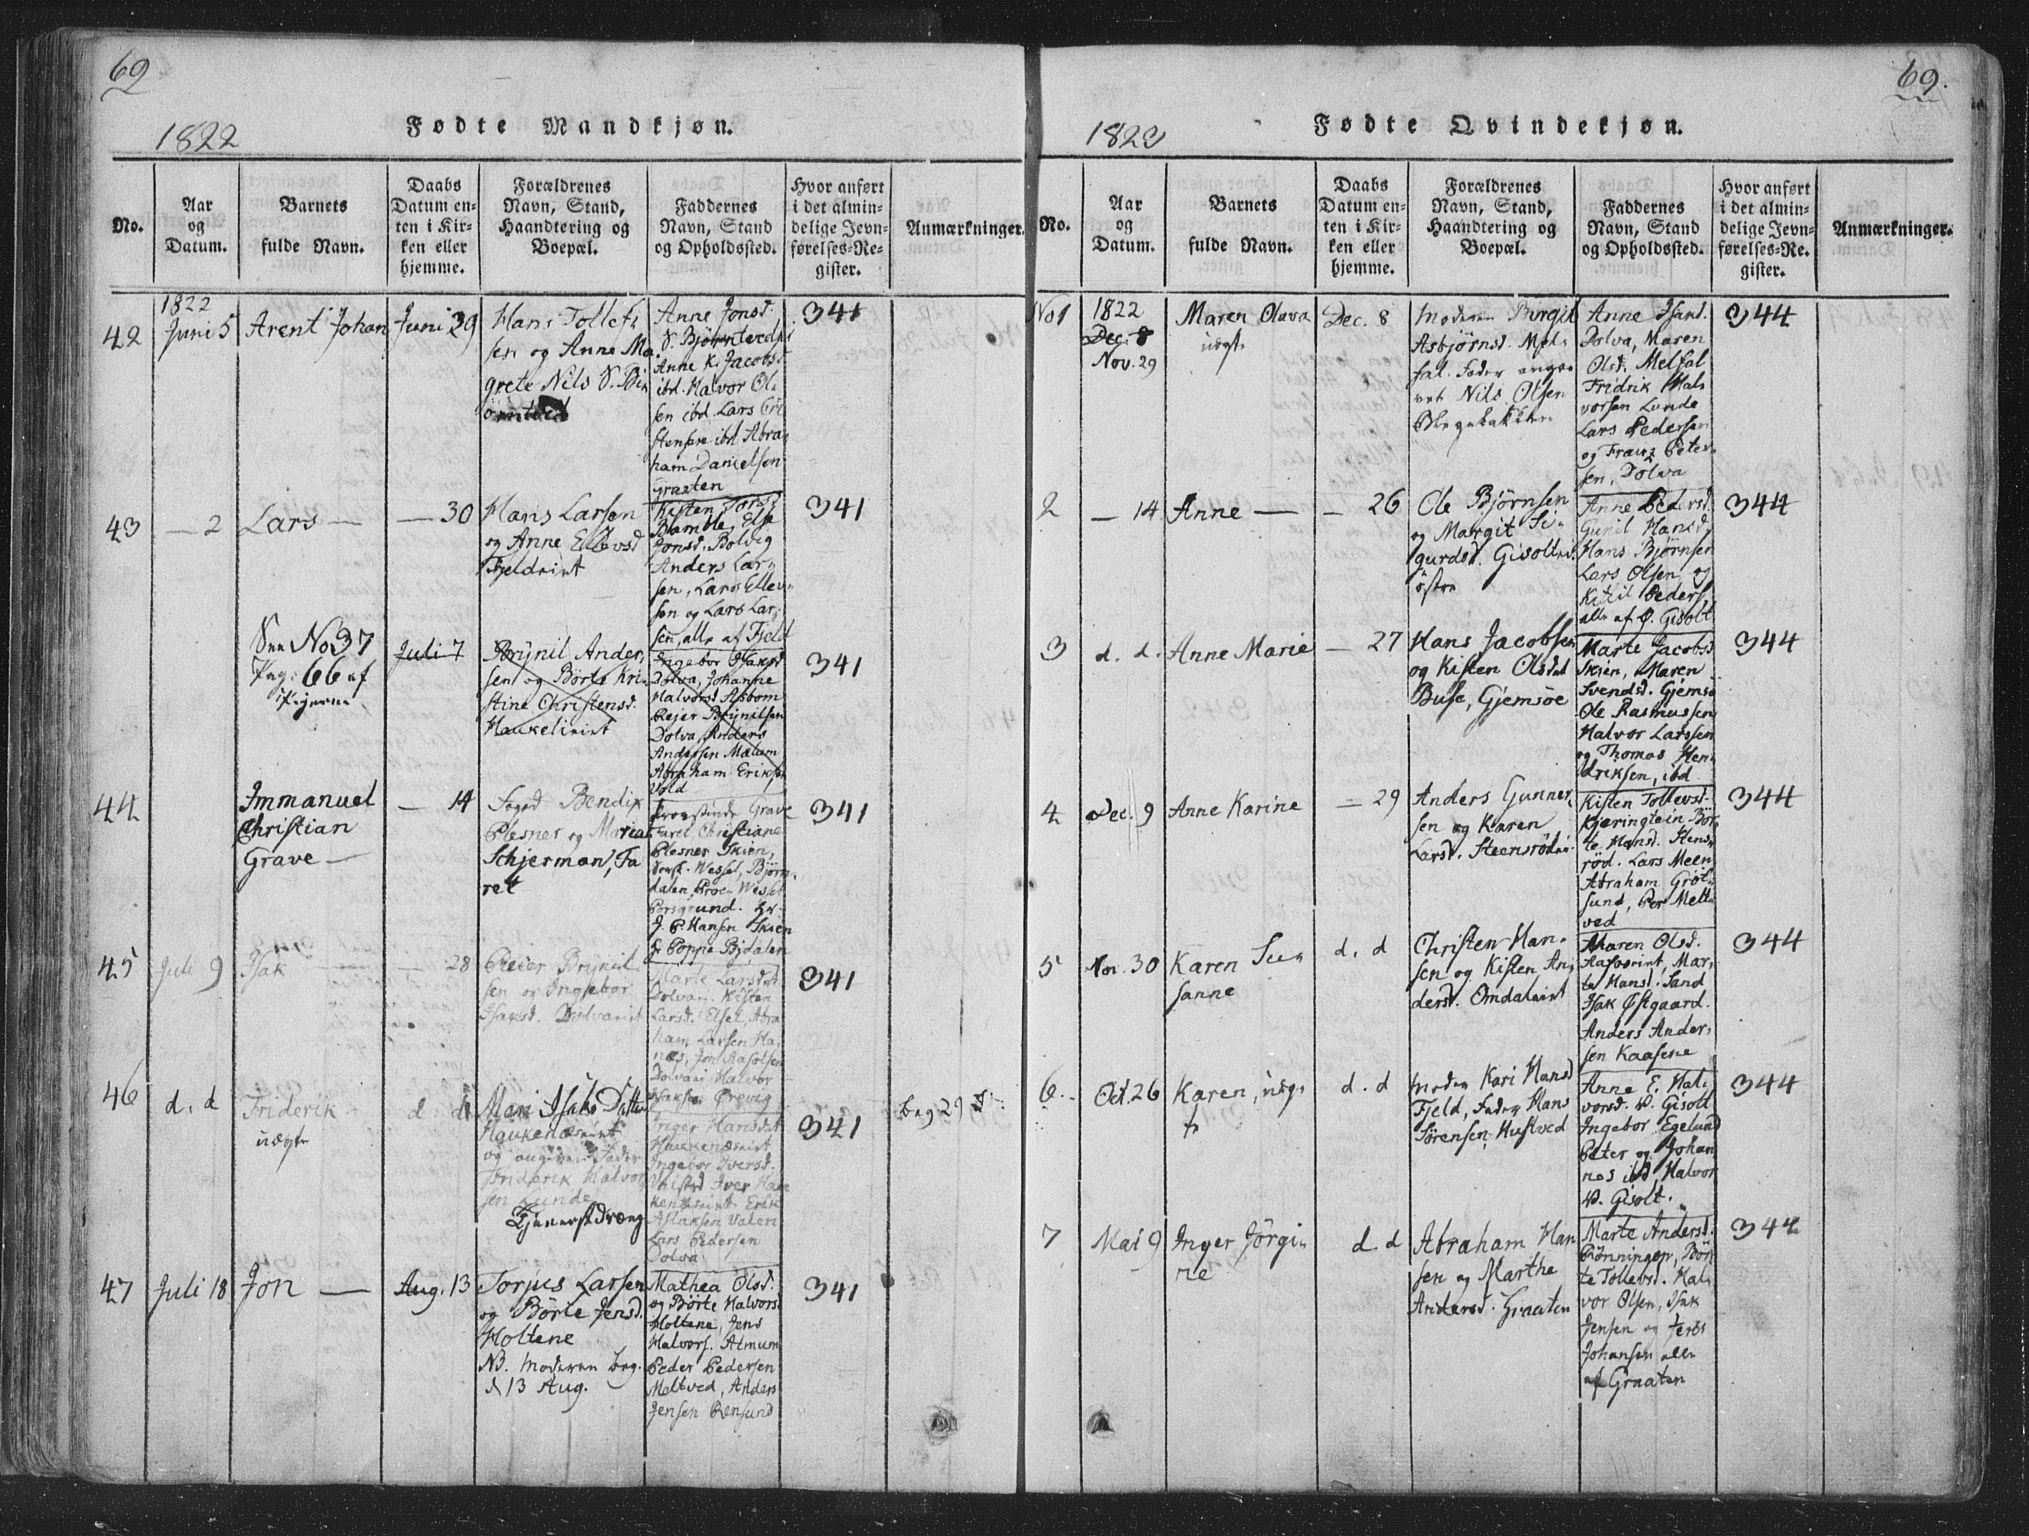 69
1822
Fødte Mandkjøn.
No.
Aar
og
Datum.
Barnets
fulde Navn.
Daabs
Datum en-
ten i Kir-
ken eller
hjemme.
Forældrenes
Navn, Stand,
Haandtering og
Boepæl.
Faddernes
Navn, Stand
og Opholdssted.
Hvor anført
i det almin-
delige Jevn-
førelses-Re-
gister.
Anmærkninger.
42
1822
Juni 5
Arent Johan
Juni 29
Hans Tollefs
sen og Anne Ma
grete Nils
Anne Jonsd.
Anne K. Jacobsd
ibd. Halvor Ol
sen ibd. Lars
ibd Abra
ham Danielsen
Graaten
341
43
— 2
Lars —
— 30
Hans Larsen
og Anne Ellevsd
Kisten
Bamble, Else
Jonsd. Bolvig
Anders Lar
sen, Lars Ellev
sen og Lars Lar
sen, alle af Fjeld
341
See No 37
Pag: 66 af
Pigerne
Juli 7
Brynil Ander
sen og Börte Kri
stine Christensd.
Ingebor Isaksd
Dolva, Johanne
Halvorsd Asbom
Pejer Brynilsen
Dolva, Anders
Andersen Mælum
Abraham Eriksen
Vold
341
44
Immanuel
Christian
Grave —
— 14
Foged Bendix
Plesner og Maria
Schjerman, Fa
ret
Provstinde Grave
Faret Christiane
Plesner Skien,
Wessel, Björn
dalen, Proc. Wessel
Porsgrund. Hr.
J. P. Hansen Skien
Hr Poppe Bjdalen
341
45
Juli 9
Isak
— 28
Peier Brynil
sen og Ingebor
Isaksd. Dolvaeiet
Marte Larsdat
Dolva. Kisten
Larsd. Elset, Abra
ham Larsen Ha
næs, Jon
Dolvaei Halvor
Isaksen Örevig
341
46
d. d
Friderik
uægte
d. d
Mari Isaks Datter
og angiven Fader
Friderik Halvor
sen Lunde
Inger Hansdat
Ingebor Iversd.
Iver Hau
Erik
Aslaksen Valen
Lars Pedersen
Dolva
341
47
Juli 18
Jon —
Aug. 13
Torjus Larsen
og Börte Jensd.
Holtene
NB. Moderen beg.
d 13 Aug.
Mathea Olsd.
og Börte Halvors
Holtene, Jens
Halvors. Almum
Peder Pedersen
Meltved, Anders
Jensen Bensund
341
69.
1823
Fødte Qvindekjøn.
No.
Aar
og
Datum.
Barnets
fulde Navn.
Daabs
Datum en-
ten i Kir-
ken eller
hjemme.
Forældrenes
Navn, Stand,
Haandtering og
Boepæl.
Faddernes
Navn, Stand
og Opholdssted.
Hvor anført
i det almin-
delige Jevn-
førelses-Re-
gister.
Anmærkninger.
No 1
1822
Dec. 8
Nov. 29
Maren Olava
uægte
Dec. 8
Moderen Birgit
Asbjørnsd. Mel
fal. Fader angi
vet Nils Olsen
Blegebakken
Anne Isaksd.
Dolva, Maren
Olsd. Melfal
Fridrik Hal
vorsen Lunde
Lars Pedersen
og Franz Peter
sen, Dolva
344
2
— 14
Anne —
— 26
Ole Björnsen
og Margit Si
gurdsd. Gisolt
östre
Anne Pedersd.
Gunil Hansd,
Hans Björnsen
Lars Olsen og
Kitil Peders.
alle af Ö. Gisolt
344
3
d. d.
Anne Marie
— 27
Hans Jacobsen
og Kisten Olsdat
Buse, Gjemsöe
Marte Jacobsd
Skien, Maren
Svendsd. Gjemsö
Ole Rasmussen
Halvor Larssen
og Thomas Hen
driksen, ibd
344
4
Dec. 9
Anne Karine
— 29
Anders Gunner
sen og Karen
Larsd. Steensrödei
Kisten Tollevsd.
Kjeringtein Bör
te Hansd. Stens
röd. Lars Meen
Abraham Gröt
sund, Per Melt
ved
344
5
Nov. 30
Karen Su
sanne
d. d
Christen Han
sen og Kisten An
dersd. Omdaleiet
Maren Olsd.
Aasværeiet, Mar
te Hansd. Sand
Isak Östgaard.
Anders Ander
sen Kaasene
344
6
Oct. 26
Karen, uæg
te
d. d
Moder Kari Hansd
Fjeld, Fader Hans
Sörensen Hustved
Anne E. Hal
vorsd. V. Gisolt
Ingebor Egelund
Peter og Johan
nes ibd Halvor
V. Gisolt.
344
7
Mai 9
Inger Jörgi
ne
d. d
Abraham Han
sen og Marthe
Andersd. Graaten
Marte Andersd.
Rönningen, Bör
te Tollevsd. Hal
vor Olsen, Isak
Jensen og Jens
Johansen alle
af Graaten
344